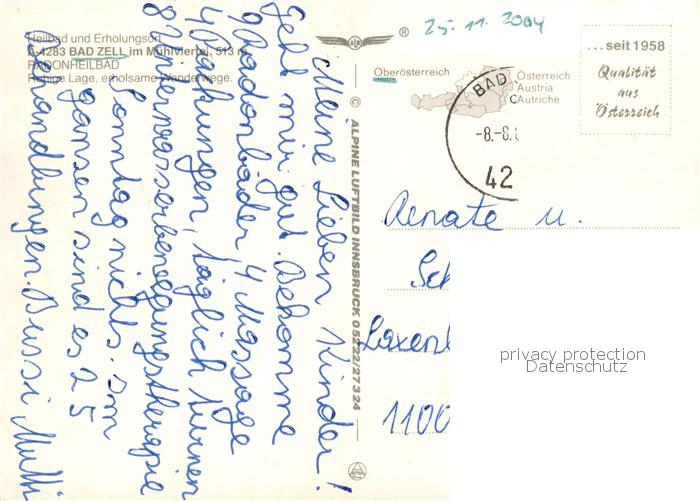 Heilbad und Erholungsort
A-4283 BAD ZELL im Mühlviertel, 513 m
RADONHEILBAD
Ruhige Lage, erholsame Wanderwege.
Meine Lieben Kinder!
Geht mir gut. Bekomme
9 Radonbäder, 4 Massage
4 Packungen, täglich turnen
8 Unterwasserbewegungstherapie
Sonntag nichts. im
ganzen sind es 25
Behandlungen. Bussi Mutti
© ALPINE LUFTBILD INNSBRUCK 05222/27324
®
25. 11. 2004
Oberösterreich
Österreich
Austria
Autriche
BAD
-8.-8.
42
...seit 1958
Qualität
aus
Österreich
Renate u.
Laxen
1100
privacy protection
Datenschutz